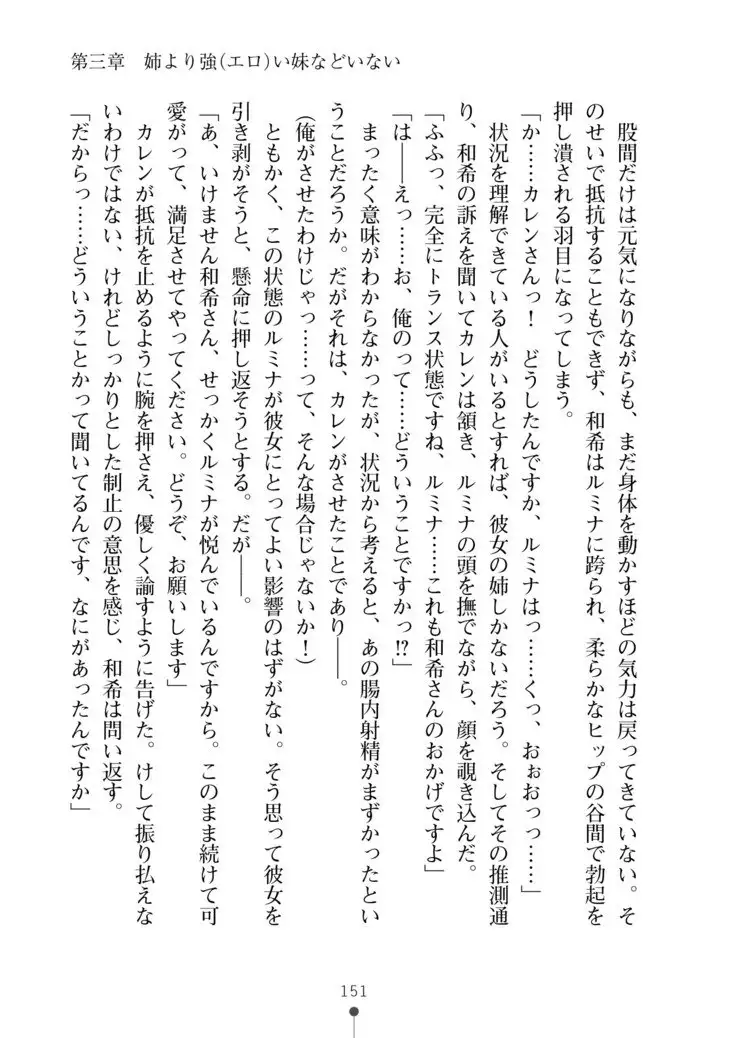 第三章　姉より強(エロ)い妹などいない
　股間だけは元気になりながらも、まだ身体を動かすほどの気力は戻ってきていない。そ
のせいで抵抗することもできず、和希はルミナに跨られ、柔らかなヒップの谷間で勃起を
押し潰される羽目になってしまう。
「か……カレンさんっ！　どうしたんですか、ルミナはっ……くっ、おぉおっっ……」
　状況を理解できている人がいるとすれば、彼女の姉しかないだろう。そしてその推測通
り、和希の訴えを聞いてカレンは頷き、ルミナの頭を撫でながら、顔を覗き込んだ。
「ふふっ、完全にトランス状態ですね、ルミナ……これも和希さんのおかげですよ」
「は――えっ……お、俺のって……どういうことですかっ!?」
　まったく意味がわからなかったが、状況から考えると、あの腸内射精がまずかったとい
うことだろうか。だがそれは、カレンがさせたことであり――。
（俺がさせたわけじゃっ……って、そんな場合じゃないか！）
　ともかく、この状態のルミナが彼女にとってよい影響のはずがない。そう思って彼女を
引き剥がそうと、懸命に押し返そうとする。だが――。
「あ、いけません和希さん、せっかくルミナが悦んでいるんですから。このまま続けて可
愛がって、満足させてやってください。どうぞ、お願いします」
　カレンが抵抗を止めるように腕を押さえ、優しく諭すように告げた。けして振り払えな
いわけではない、けれどしっかりとした制止の意思を感じ、和希は問い返す。
「だからっ……どういうことかって聞いてるんです、なにがあったんですか」
151